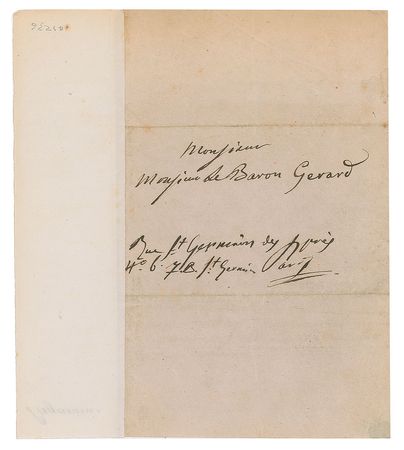 Monsieur
Monsieur le Baron Gerard
Rue St Germain des prés
No 6. St Germain Paris